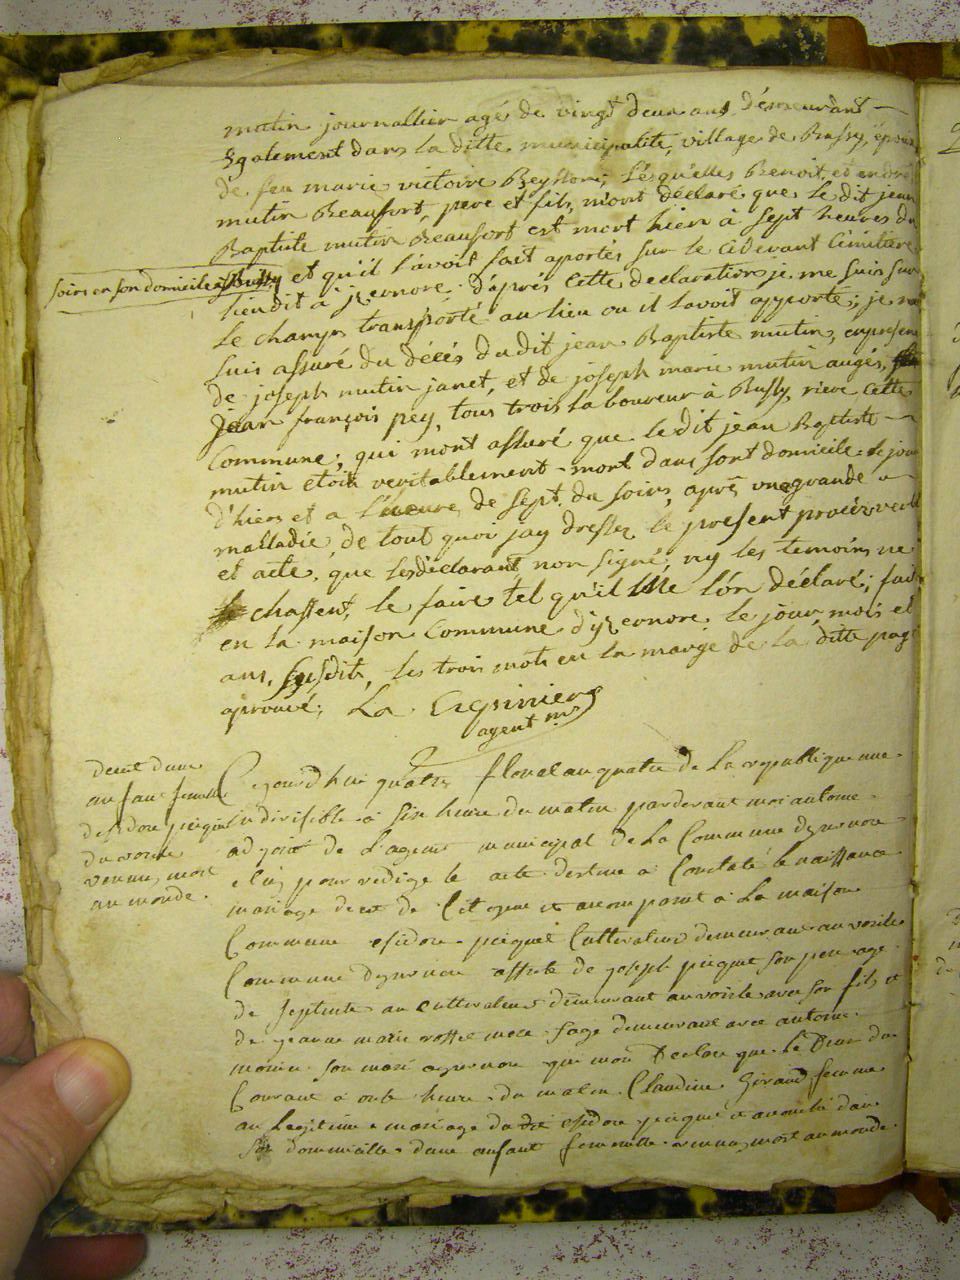 mutin journallier agé de vingt deux ans Démeurant
Egalement dans la ditte municipalité, village de Bussy, époux
de feu marie victoire Beyssons, lésquélles Benoit, et andré
mutin Beaufort, pere et fils, m'ont déclaré que le dit jean
Baptiste mutin Beaufort est mort hier à sept heures du
soirs en son domicile à Bussy
et qu'il l'avoit fait aportés sur le cidevant Cimitiere
liendit à yzeronore. d'aprés cette declaration, je me suis sur
le champs transporté au lieu ou il l'avoit apporté; je me
suis assuré du décés du dit jean Baptiste mutin, en presence
de joseph mutin janet, et de joseph marie mutin augés,
jean françois pey, tous trois laboureur à Bussy, riere cette
Commune; qui mont assuré que le dit jean Baptiste
mutin étoit veritablement mort dans sont domicile le jour
d'hiers et a l'heure, de sept du soirs, aprés une grande
malladie, de tout quoi jay dressez le present procéz verbal
et acte, que les déclarant non signé, ny les temoins ne
sachassent, le faire tel qu'il me l'on déclaré; fait
en la maison Commune d'yzeronore le jour, mois et
ans, susdits, les trois mots en la marge de la ditte page
aprouvé;
La Crepiniere
agent m.al
deces dune
anfant femelle
desidore picquet
du voisle
venue mort
au monde.
Cejourd'hui quatre floreal an quatre de la republique une
indivisible a six heure du matin pardevant moi antoine
adjoint de l'agent municipal de la Commune dyzernore
elus pour rediger le acte destine a Constaté le naissance
mariage deces de Citoyens et aucomparut à la maison
Commune esidore picquet Cultivateur demeurant au voisle
Commune dyzernore assisté de joseph picquet son pere age
de septente an cultivateur demeurant au voisle avec son fils et
de jeanne marie rosset mere sage demeurant avec antoine
monin son mari ayzernore qui mon declare que le deux du
Courant à onze heure du matin Claudine Giraud femme
au legitime mariage du dit esidore picquet et acouché dans
son dommicille dune anfant femmelle venuz mort au monde.